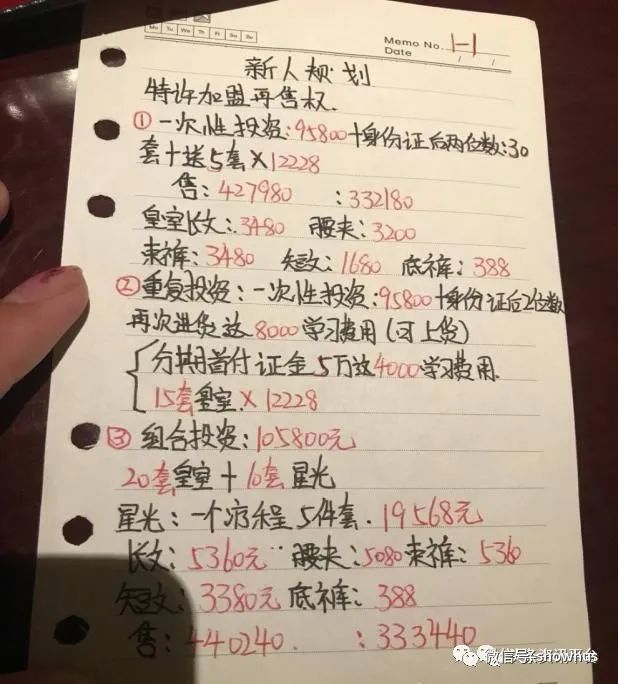 Mo Tu We Th Fr Sa Su
Memo No. 1-1
Date / /
新人规划
特许加盟再售权.
① 一次性投资:95800+身份证后两位数:30
套+送5套×12228
售:427980 :332180
皇室长文:3480 腰夹:3200
束裤:3480 短文:1680 底裤:388
②重复投资:一次性投资:95800+身份证后2位数
再次进货达8000学习费用(可上货)
分期首付证金5万达4000学习费用.
15套皇室×12228
③ 组合投资:105800元
20套皇室+10套星光
星光:一个疗程5件套.19568元
长文:5360元 腰夹:5080束裤:5360
短文:3380元 底裤:388
售:440240. :333440
微信号:shownus